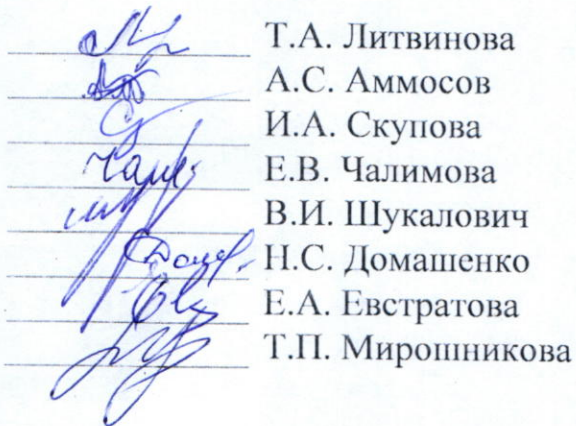 Т.А. Литвинова
А.С. Аммосов
И.А. Скупова
Е.В. Чалимова
В.И. Шукалович
Н.С. Домашенко
Е.А. Евстратова
Т.П. Мирошникова